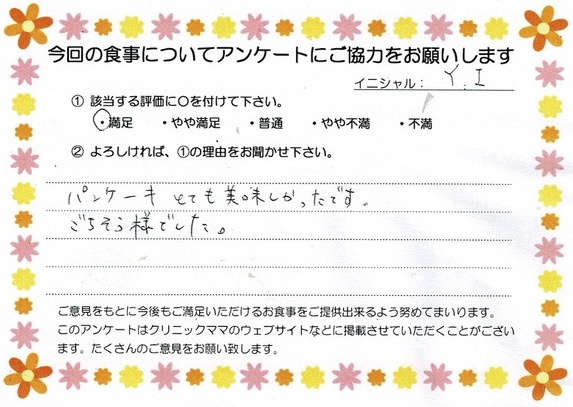 今回の食事についてアンケートにご協力をお願いします
イニシャル： Y.I
① 該当する評価に○を付けて下さい。
・満足 ・やや満足 ・普通 ・やや不満 ・不満
② よろしければ、①の理由をお聞かせ下さい。
パンケーキ とても美味しかったです。
ごちそう様でした。
ご意見をもとに今後もご満足いただけるお食事をご提供出来るよう努めてまいります。
このアンケートはクリニックママのウェブサイトなどに掲載させていただくことがござい
ます。たくさんのご意見をお願い致します。